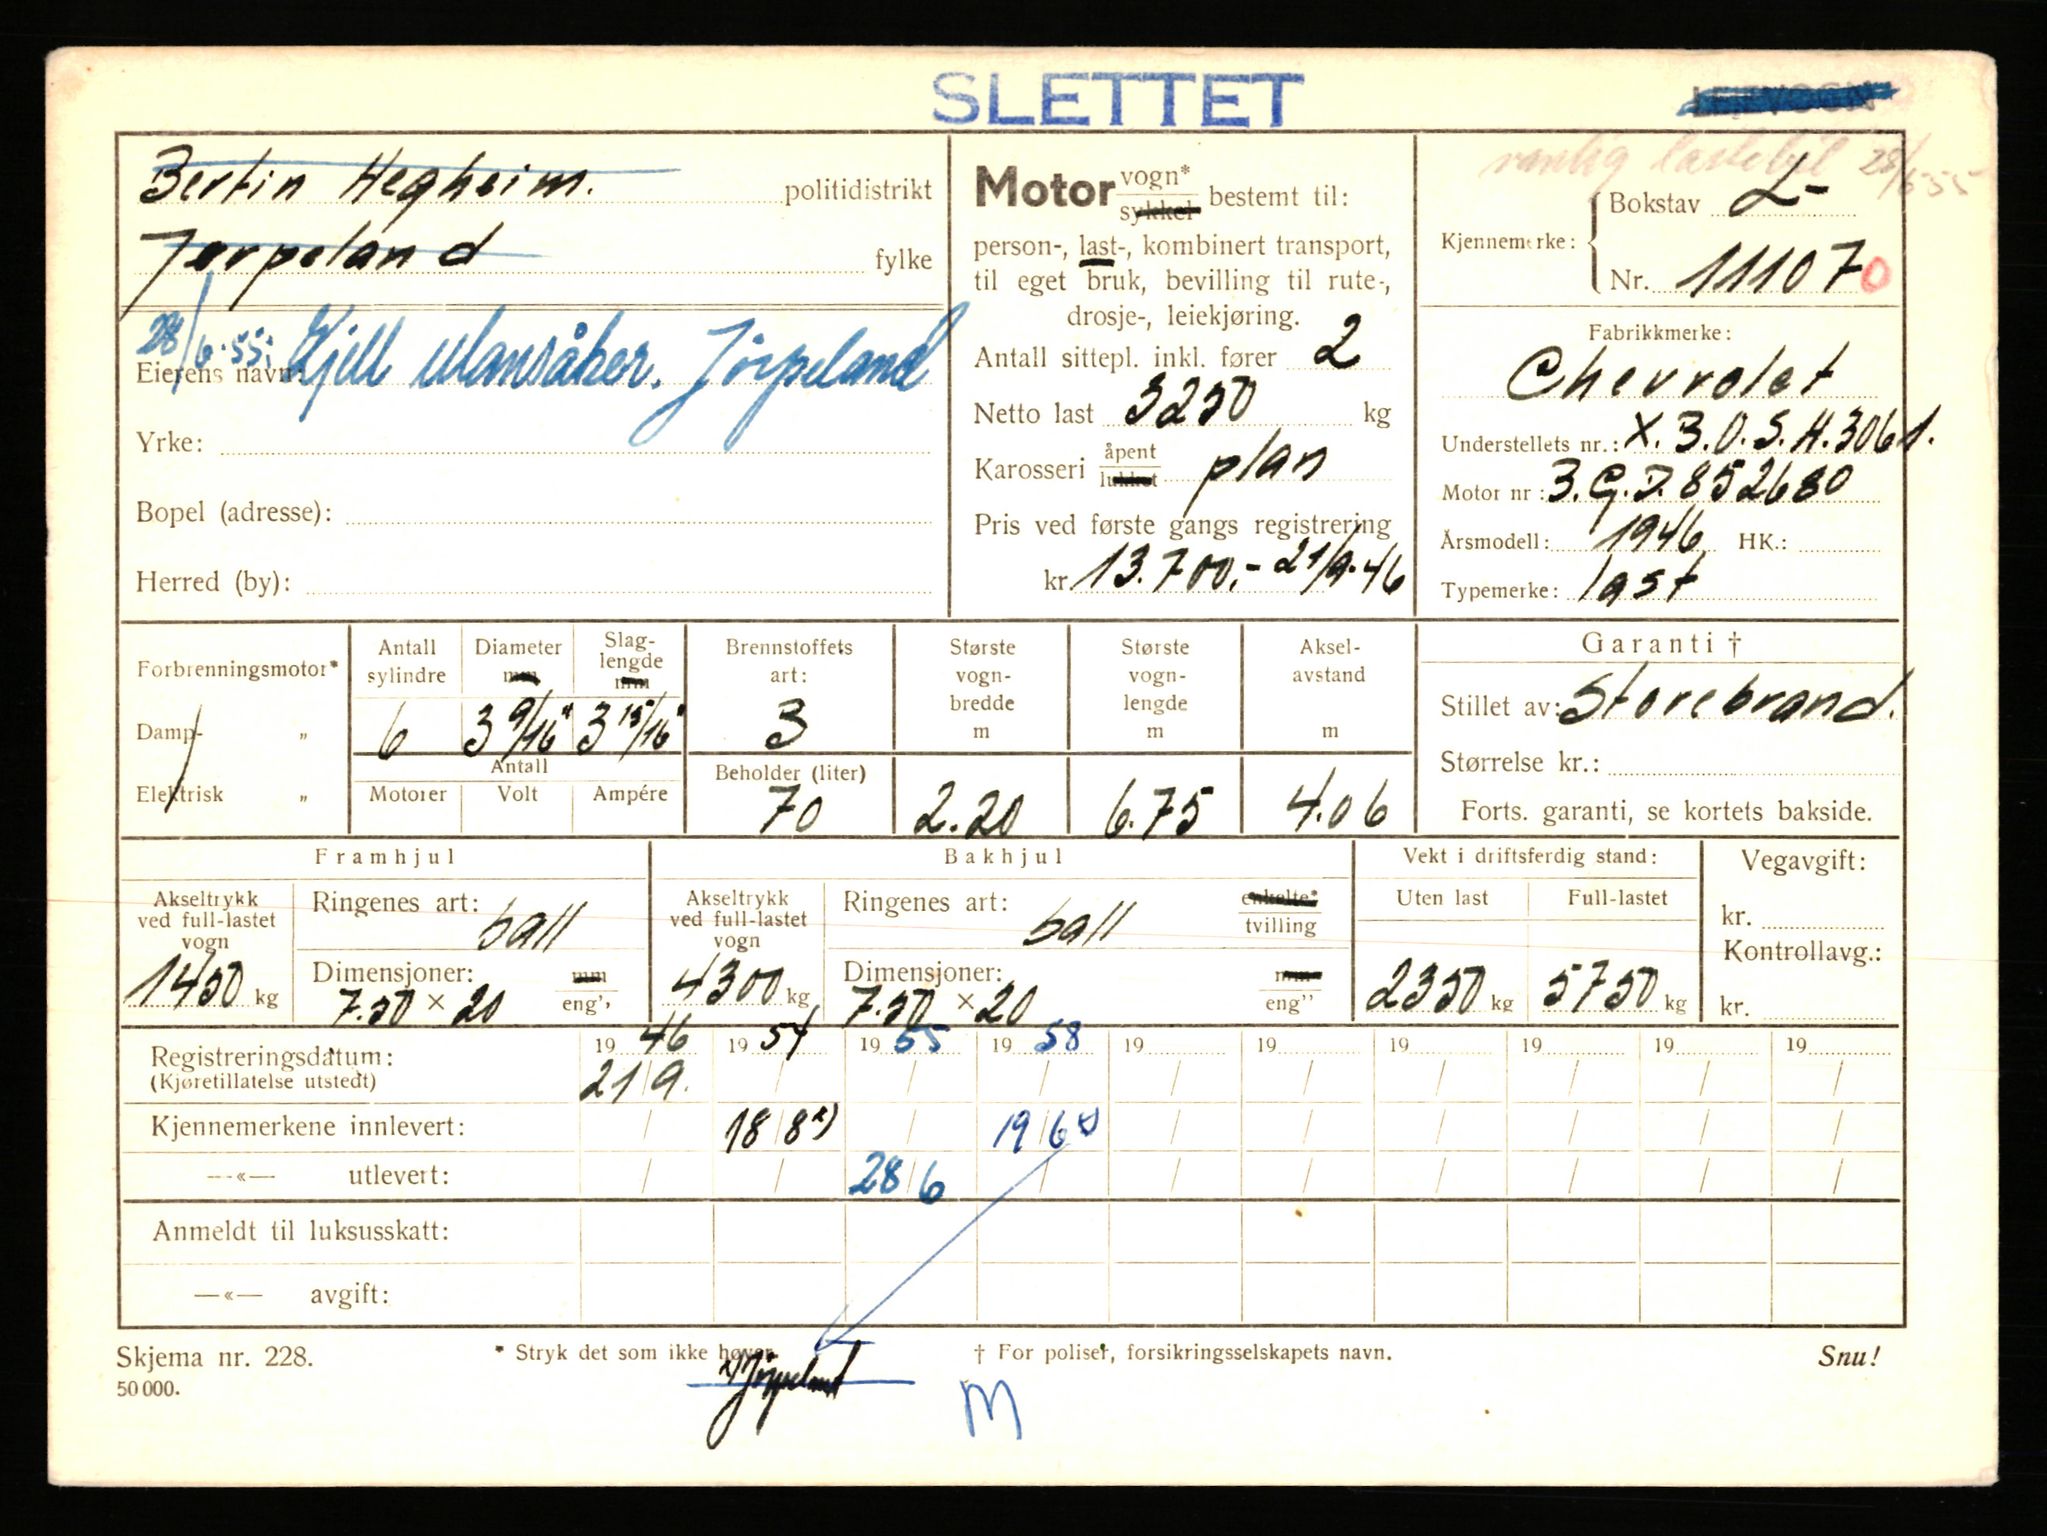 SLETTET
vanlig lastebil 28/6-55
Bertin Hegheim. politidistrikt
Jørpeland fylke
28/6-55: Kjell Ulansåker. Jørpeland
Eierens navn:
Yrke:
Bopel (adresse):
Herred (by):
Motor vogn* sykkel bestemt til:
person-, last-, kombinert transport,
til eget bruk, bevilling til rute-,
drosje-, leiekjøring.
Antall sittepl. inkl. fører 2
Netto last 3250 kg
Karosseri åpent lukket plan
Pris ved første gangs registrering
kr 13.700.- 21/9-46
Kjennemerke: Bokstav L-
Nr. 111070
Fabrikkmerke:
Chevrolet
Understellets nr.: X.3.O.S.H.3061.
Motor nr: 3.G.D.852680
Årsmodell: 1946 HK.:
Typemerke: last
Forbrenningsmotor*
Damp- „
Elektrisk „
Antall sylindre 6
Diameter mm 3 9/16"
Slaglengde mm 3 15/16"
Antall
Motorer Volt Ampére
Brennstoffets art: 3
Beholder (liter) 70
Største vogn-bredde m 2.20
Største vogn-lengde m 6.75
Aksel-avstand m 4.06
Garanti †
Stillet av: Storebrand.
Størrelse kr.:
Forts. garanti, se kortets bakside.
Framhjul
Akseltrykk ved full-lastet vogn 1450 kg
Ringenes art: ball
Dimensjoner: mm
7.50 × 20 eng''
Bakhjul
Akseltrykk ved full-lastet vogn 4300 kg
Ringenes art: ball enkelte* tvilling
Dimensjoner: mm
7.50 × 20 eng''
Vekt i driftsferdig stand:
Uten last 2350 kg
Full-lastet 5750 kg
Vegavgift:
kr.
Kontrollavg.:
kr.
19 46 19 54 19 55 19 58 19 19 19 19 19 19
Registreringsdatum: 21/9.
(Kjøretillatelse utstedt)
Kjennemerkene innlevert: 18/8 x) 19/6 x)
—«— utlevert: 28/6
Anmeldt til luksusskatt:
—«— avgift:
Skjema nr. 228.
50 000.
* Stryk det som ikke høver.
† For poliser, forsikringsselskapets navn.
Snu!
x) Jørpeland
M